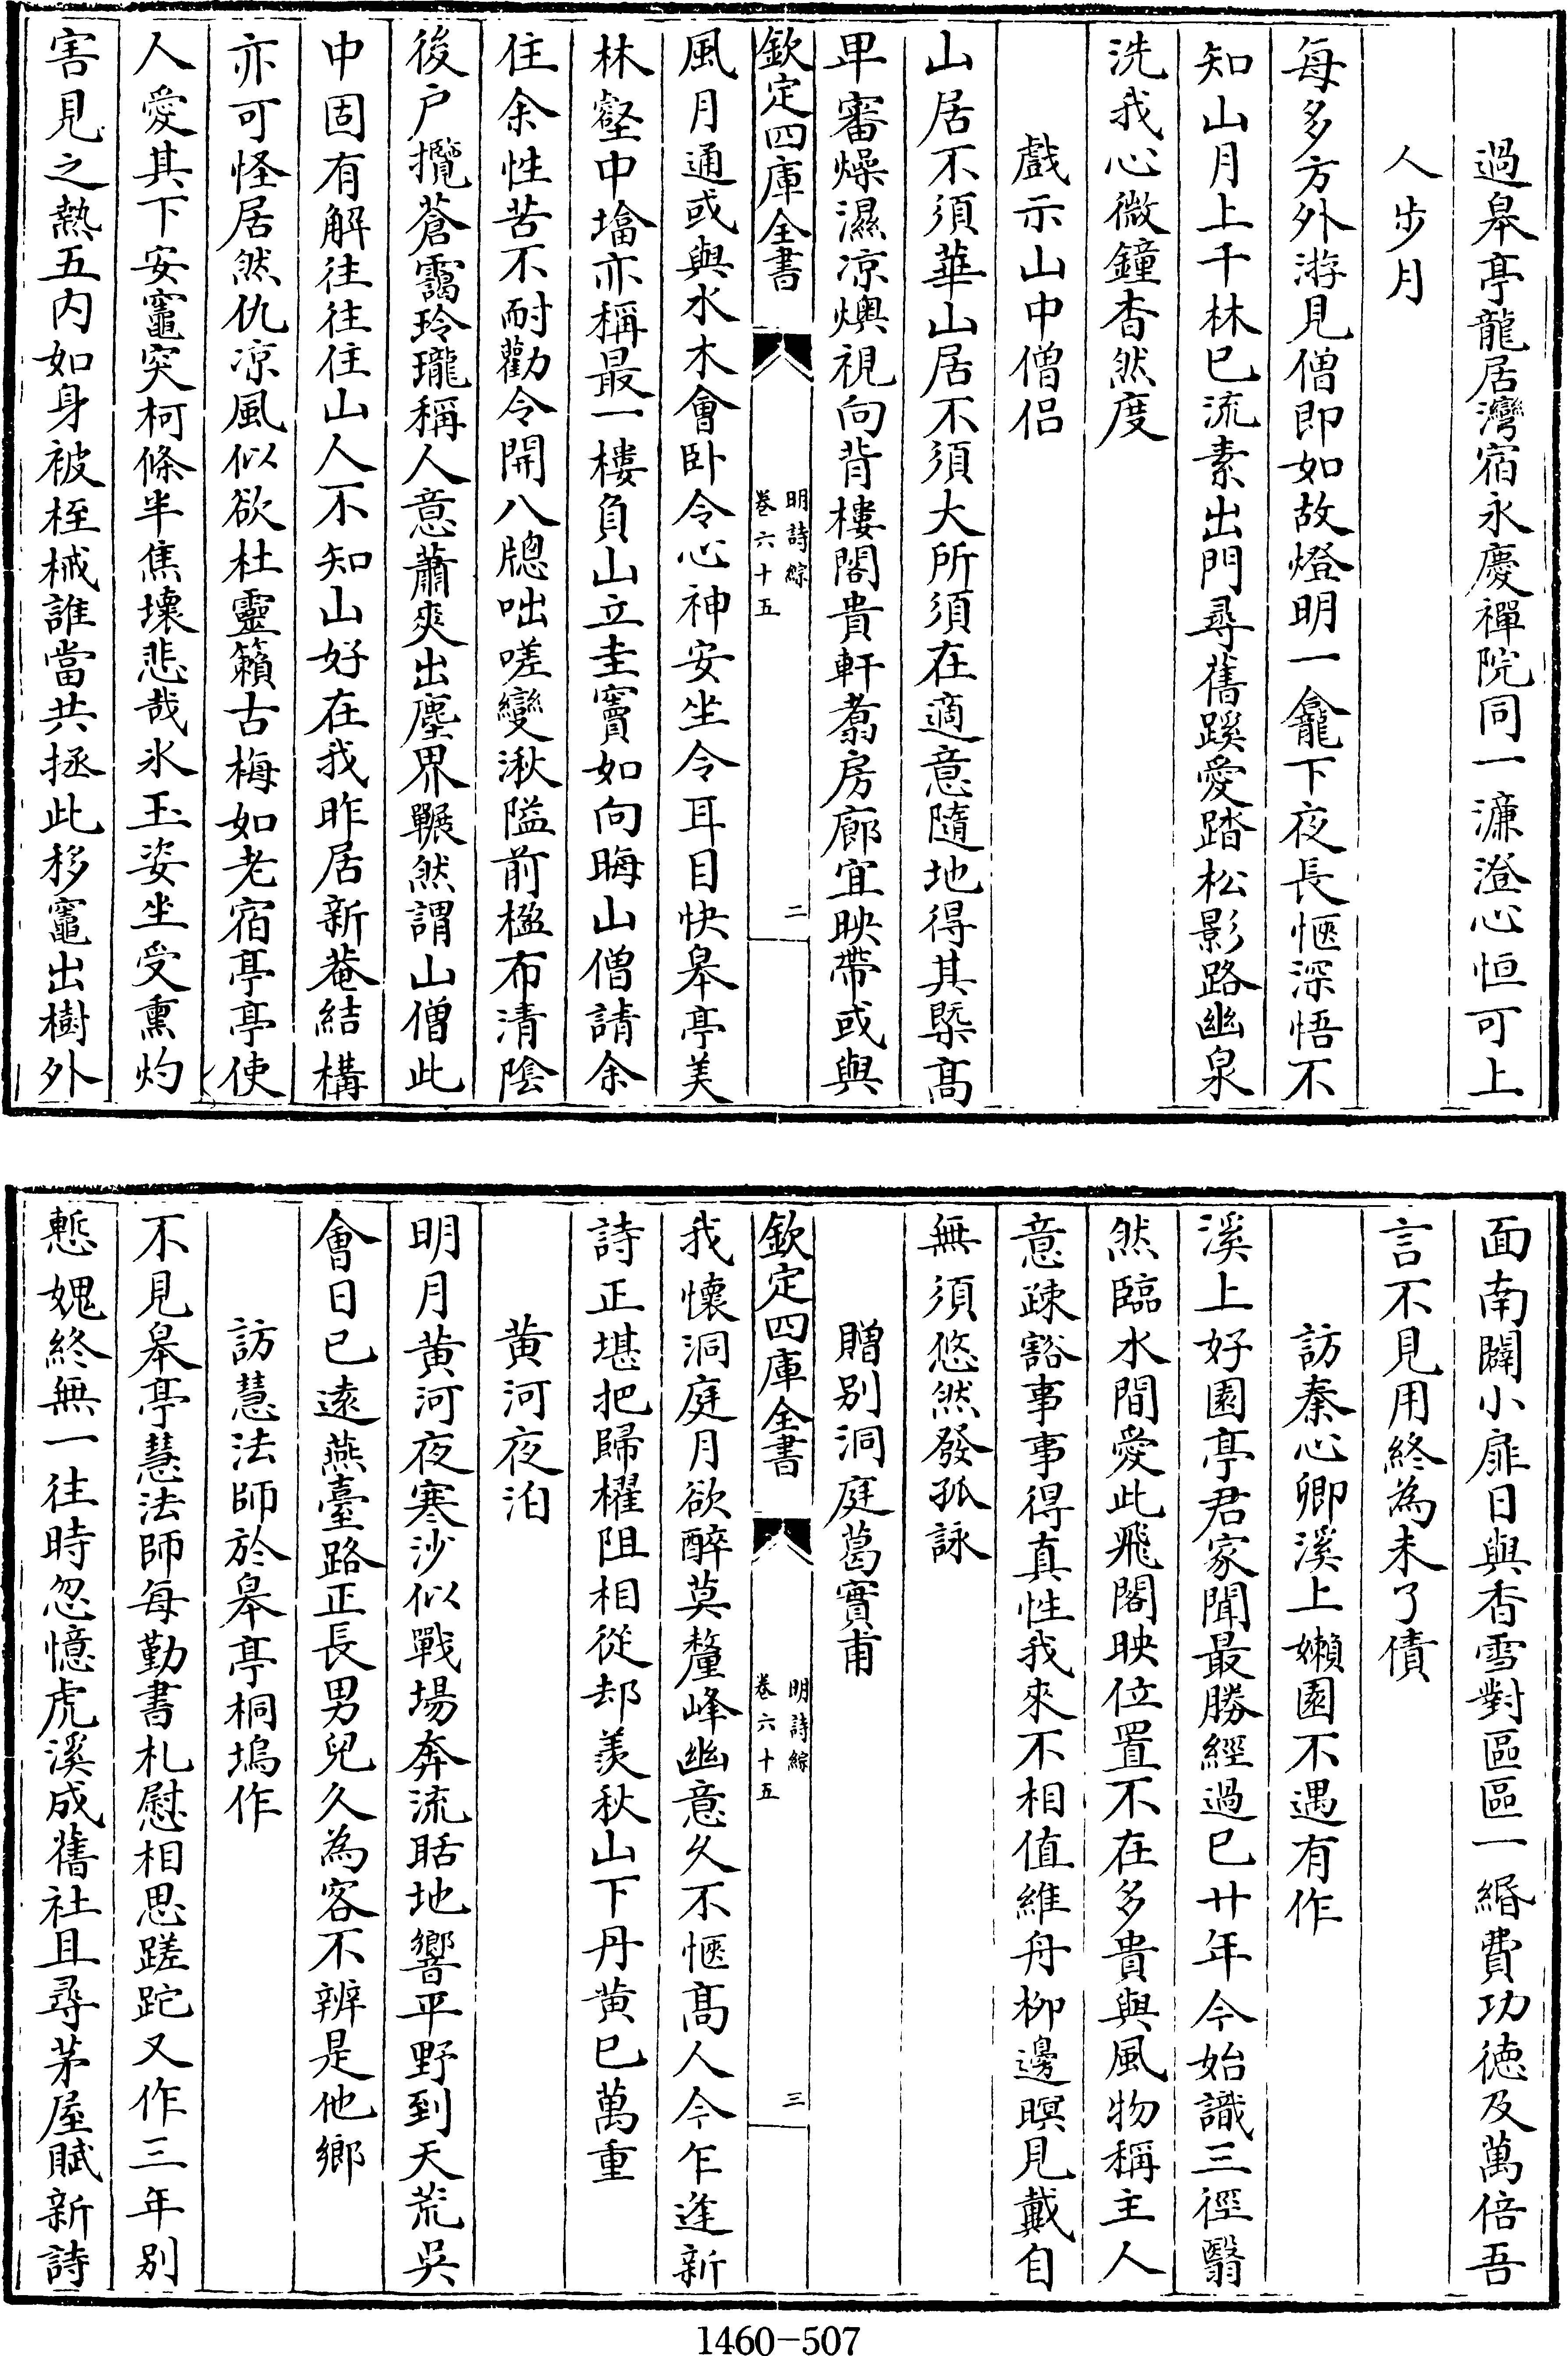 過臯亭龍居灣宿永慶禪院同一濓澄心恒可上
人步月
每多方外游見僧即如故燈明一龕下夜長愜深悟不
知山月上千林已流素出門尋舊蹊愛踏松影路幽泉
洗我心微鐘杳然度
戲示山中僧侣
山居不須華山居不須大所須在適意隨地得其槩髙
卑審燥濕凉燠視向背樓閣貴軒翥房廊宜映帶或與
欽定四庫全書
明詩綜
卷六十五
二
風月通或與水木會卧令心神安坐令耳目快臯亭美
林壑中墖亦稱最一樓負山立圭竇如向晦山僧請余
住余性苦不耐勸令開八牕咄嗟變湫隘前楹布清陰
後户攬蒼靄玲瓏稱人意蕭爽出塵界囅然謂山僧此
中固有解往往住山人不知山好在我昨居新菴結構
亦可怪居然仇凉風似欲杜靈籟古梅如老宿亭亭使
人愛其下安竈突柯條半焦壊悲哉氷玉姿坐受熏灼
害見之熱五内如身被桎械誰當共拯此移竈出樹外
面南闢小扉日與香雪對區區一緡費功徳及萬倍吾
言不見用終為未了債
訪秦心卿溪上嬾園不遇有作
溪上好園亭君家聞最勝經過已廿年今始識三徑翳
然臨水間愛此飛閣映位置不在多貴與風物稱主人
意踈豁事事得真性我來不相值維舟柳邊暝見戴自
無須悠然發孤詠
贈别洞庭葛實甫
欽定四庫全書
明詩綜
卷六十五
三
我懷洞庭月欲醉莫釐峰幽意久不愜髙人今乍逢新
詩正堪把歸櫂阻相從却羨秋山下丹黄已萬重
黄河夜泊
明月黄河夜寒沙似戰場奔流聒地響平野到天荒吳
會日已逺燕臺路正長男兒久為客不辨是他鄉
訪慧法師於臯亭桐塢作
不見臯亭慧法師每勤書札慰相思蹉跎又作三年别
慙媿終無一往時忽憶虎溪成舊社且尋茅屋賦新詩
1460-507